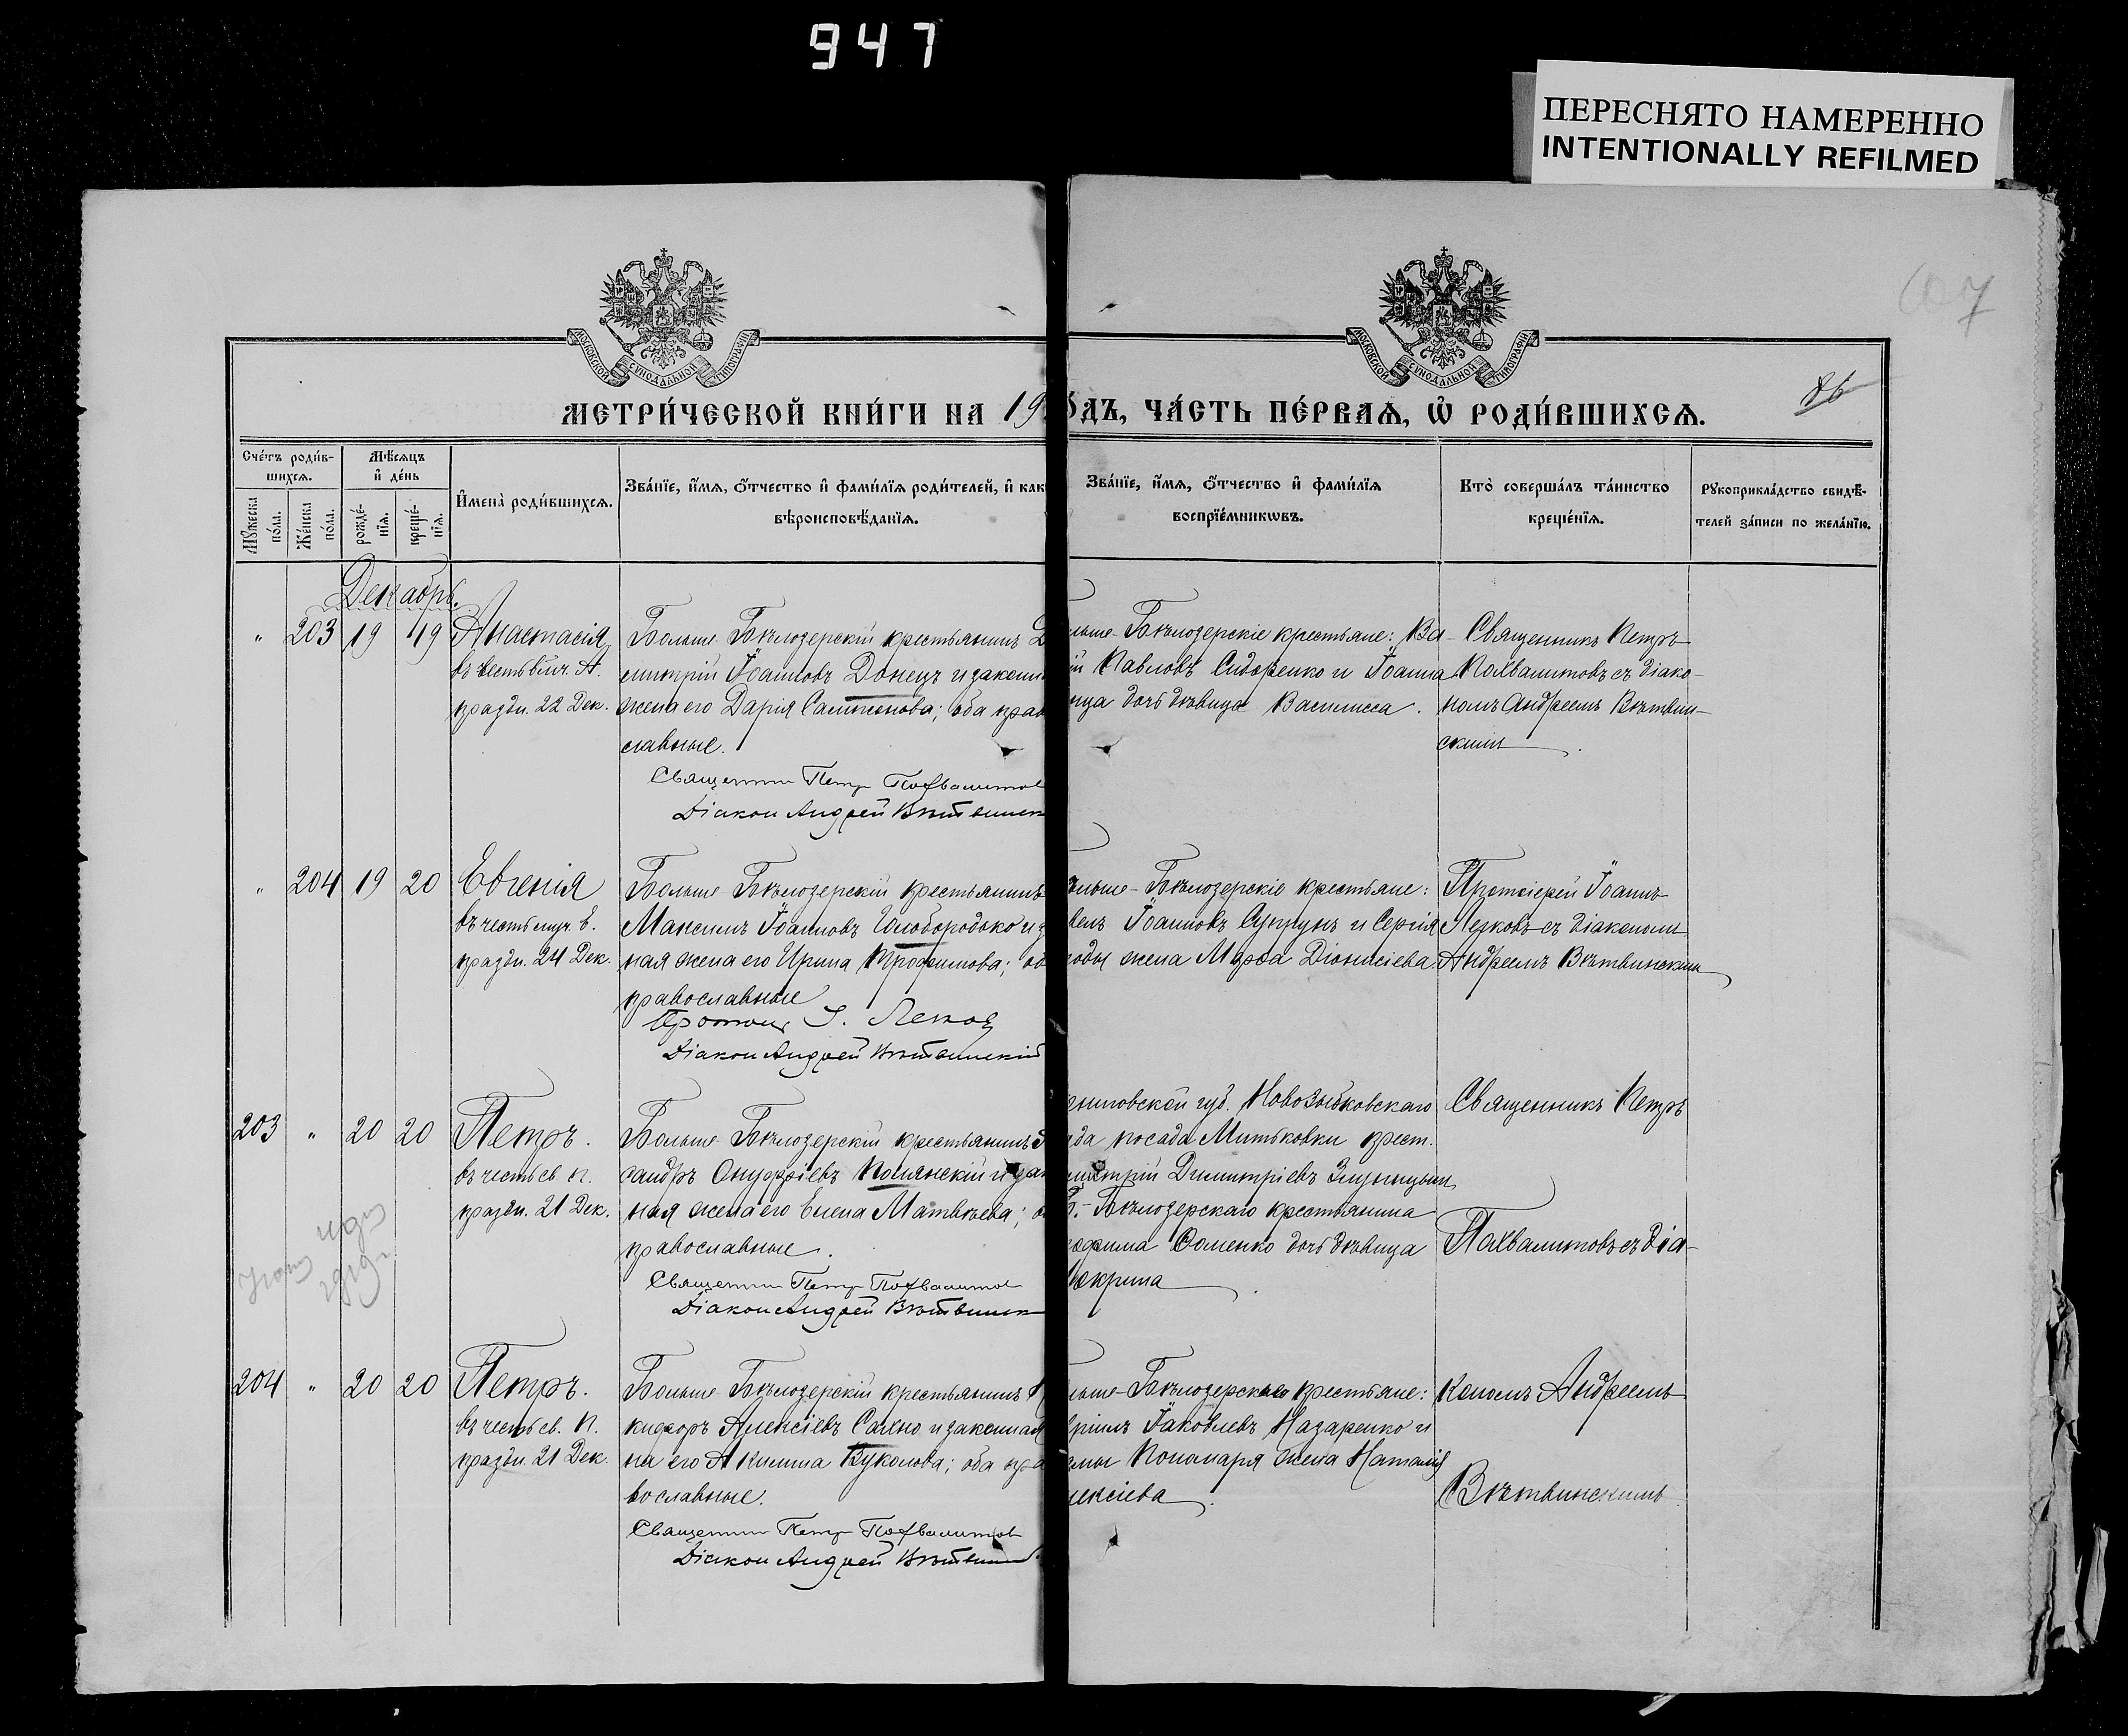 947
ПЕРЕСНЯТО НАМЕРЕННО
INTENTIONALLY REFILMED
МОСКОВСКОЙ СУНОДАЛЬНОЙ ТИПОГРАФІИ
МОСКОВСКОЙ СУНОДАЛЬНОЙ ТИПОГРАФІИ
86
МЕТРИ́ЧЕСКОЙ КНИ́ГИ НА 19
ДЪ, ЧА́СТЬ ПЕ́РВАѦ, Ѡ҆ РОДИ́ВШИХСѦ.
Сче́тъ роди́в-
шихсѧ.
Мꙋжеска по́ла.
Же́нска по́ла.
Мѣ́сѧцъ
и҆ де́нь
рожде́-
нїѧ.
креще́-
нїѧ.
И҆мена̀ роди́вшихсѧ.
Зва́нїе, и҆́мѧ, ѻ҆́тчество и҆ фами́лїѧ роди́телей, и҆ как
вѣроисповѣ́данїѧ.
Зва́нїе, и҆́мѧ, ѻ҆́тчество и҆ фами́лїѧ
воспрїе́мникѡвъ.
Кто̀ соверша́лъ та́инство
креще́нїѧ.
Рꙋкоприкла́дство свидѣ́-
телей за́писи по жела́нїю.
Декабрь.
" 203 19 19 Анастасія
въ честь влмч. А.
праздн. 22 Дек.
Больше-Бѣлозерскій крестьянинъ Д
митрій Іоанновъ Донецъ и законн
жена его Дарія Сампсонова; оба прав
славные.
Священник Петр Похвалитов
Діакон Андрей Вѣтвинск
льше-Бѣлозерскіе крестьяне: Ва-
ій Павловъ Сидоренко и Іоанна
нца дочь дѣвица Василисса.
Священникъ Петръ
Похвалитовъ съ діако-
номъ Андреемъ Вѣтвин-
скимъ
" 204 19 20 Евгенія
въ честь муч. Е.
праздн. 24 Дек.
Больше-Бѣлозерскій крестьянинъ
Максимъ Іоанновъ Голобородько и з
ная жена его Ирина Трофимова; об
православные
Протоиер І. Леков
Діакон Андрей Вѣтвинскій
ольше-Бѣлозерскіе крестьяне:
велъ Іоанновъ Супрунъ и Сергія
роды жена Марѳа Діонисіева.
Протоіерей Іоаннъ
Лековъ съ діакономъ
Андреемъ Вѣтвинскимъ
203 " 20 20 Петръ.
въ честь св. П.
праздн. 21 Дек.
Больше-Бѣлозерскій крестьянинъ А
сандръ Онуфріевъ Полянскій и зак
ная жена его Елена Матвѣева; о
православные.
Священник Петр Похвалитов
Діакон Андрей Вѣтвинск
рниговской губ. Новозыбковскаго
зда посада Митьковки крест.
имитрій Димитріевъ
Б.-Бѣлозерскаго крестьянина
рофима Ѳоменко дочь дѣвица
Мокрина
Священникъ Петръ
Похвалитовъ съ діа-
204 " 20 20 Петръ.
въ честь св. П.
праздн. 21 Дек.
Больше-Бѣлозерскій крестьянинъ Н
кифоръ Алексіевъ Сахно и законная
на его Акилина Вуколова; оба пра
вославные.
Священник Петр Похвалитов
Діакон Андрей Вѣтвинск
льше-Бѣлозерскіе крестьяне:
вріилъ Іаковлевъ Назаренко и
омы Пономаря жена Наталія
лексіева
кономъ Андреемъ
Вѣтвинскимъ